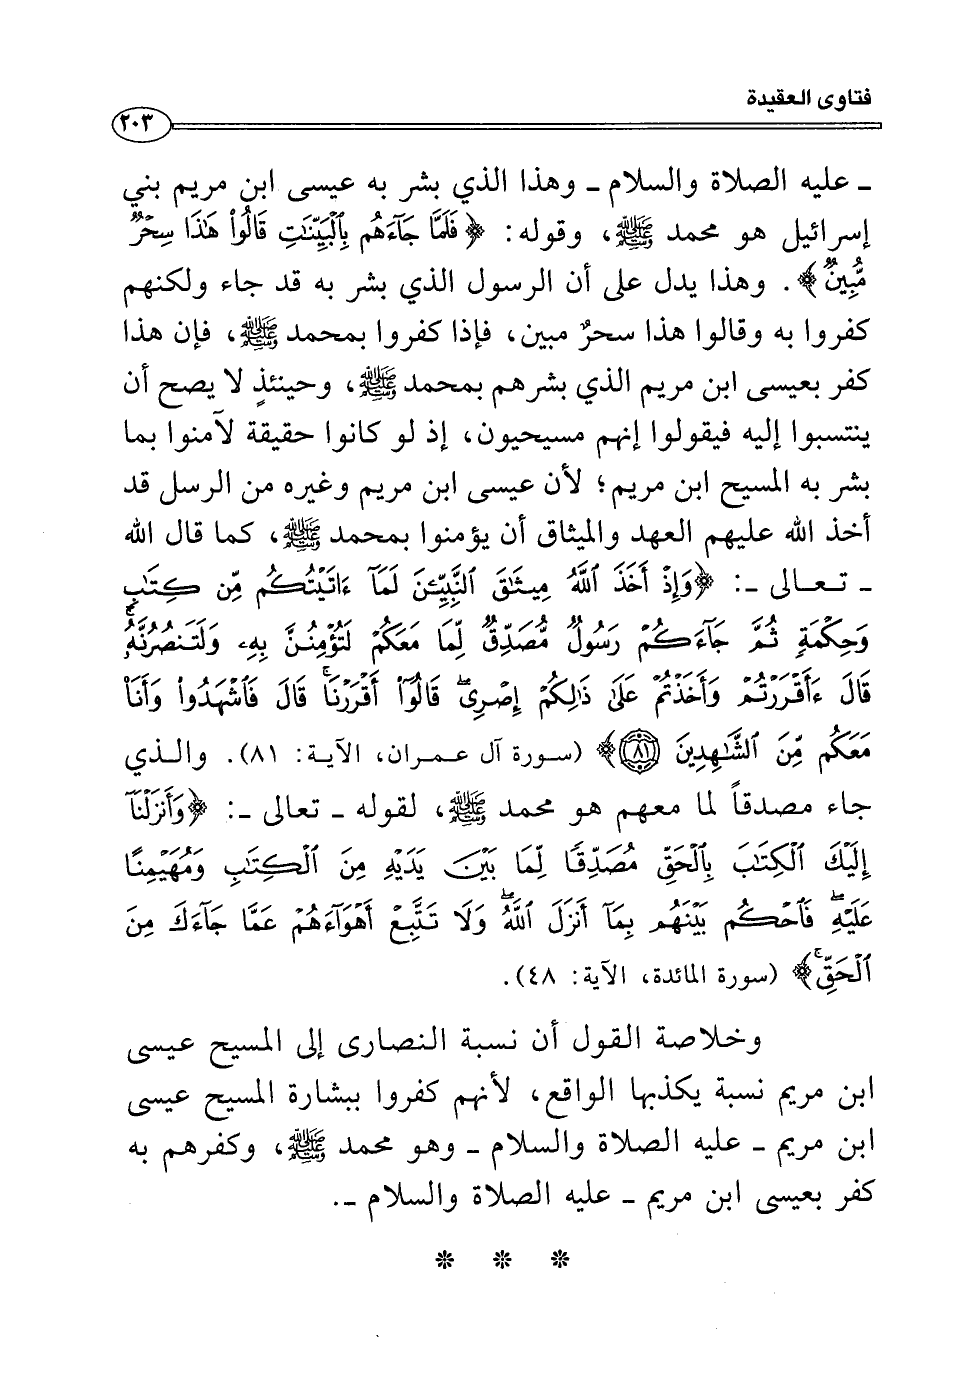 فتاوى العقيدة
٢٠٣
ـ عليه الصلاة والسلام ـ وهذا الذي بشر به عيسى ابن مريم بني
إسرائيل هو محمد ﷺ، وقوله: ﴿فَلَمَّا جَآءَهُم بِٱلْبَيِّنَٰتِ قَالُوا۟ هَٰذَا سِحْرٌ
مُّبِينٌ﴾. وهذا يدل على أن الرسول الذي بشر به قد جاء ولكنهم
كفروا به وقالوا هذا سحرٌ مبين، فإذا كفروا بمحمد ﷺ، فإن هذا
كفر بعيسى ابن مريم الذي بشرهم بمحمد ﷺ، وحينئذٍ لا يصح أن
ينتسبوا إليه فيقولوا إنهم مسيحيون، إذ لو كانوا حقيقة لآمنوا بما
بشر به المسيح ابن مريم؛ لأن عيسى ابن مريم وغيره من الرسل قد
أخذ الله عليهم العهد والميثاق أن يؤمنوا بمحمد ﷺ، كما قال الله
ـ تعالى ـ: ﴿وَإِذْ أَخَذَ ٱللَّهُ مِيثَٰقَ ٱلنَّبِيِّۦنَ لَمَآ ءَاتَيْتُكُم مِّن كِتَٰبٍ
وَحِكْمَةٍ ثُمَّ جَآءَكُمْ رَسُولٌ مُّصَدِّقٌ لِّمَا مَعَكُمْ لَتُؤْمِنُنَّ بِهِۦ وَلَتَنصُرُنَّهُۥ ۚ
قَالَ ءَأَقْرَرْتُمْ وَأَخَذْتُمْ عَلَىٰ ذَٰلِكُمْ إِصْرِى ۖ قَالُوٓا۟ أَقْرَرْنَا ۚ قَالَ فَٱشْهَدُوا۟ وَأَنَا۠
مَعَكُم مِّنَ ٱلشَّٰهِدِينَ ٨١﴾ (سورة آل عمران، الآية: ٨١). والذي
جاء مصدقاً لما معهم هو محمد ﷺ، لقوله ـ تعالى ـ: ﴿وَأَنزَلْنَآ
إِلَيْكَ ٱلْكِتَٰبَ بِٱلْحَقِّ مُصَدِّقًا لِّمَا بَيْنَ يَدَيْهِ مِنَ ٱلْكِتَٰبِ وَمُهَيْمِنًا
عَلَيْهِ ۖ فَٱحْكُم بَيْنَهُم بِمَآ أَنزَلَ ٱللَّهُ ۖ وَلَا تَتَّبِعْ أَهْوَآءَهُمْ عَمَّا جَآءَكَ مِنَ
ٱلْحَقِّ ۚ﴾ (سورة المائدة، الآية: ٤٨).
وخلاصة القول أن نسبة النصارى إلى المسيح عيسى
ابن مريم نسبة يكذبها الواقع، لأنهم كفروا ببشارة المسيح عيسى
ابن مريم ـ عليه الصلاة والسلام ـ وهو محمد ﷺ، وكفرهم به
كفر بعيسى ابن مريم ـ عليه الصلاة والسلام ـ.
* * *